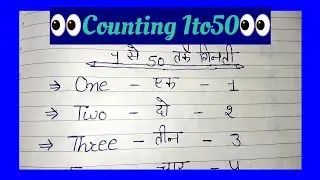 Counting 1to50
1 से 50 तक गिनती
⇒ One - एक - 1
⇒ Two - दो - 2
⇒ Three - तीन - 3
चार - 4